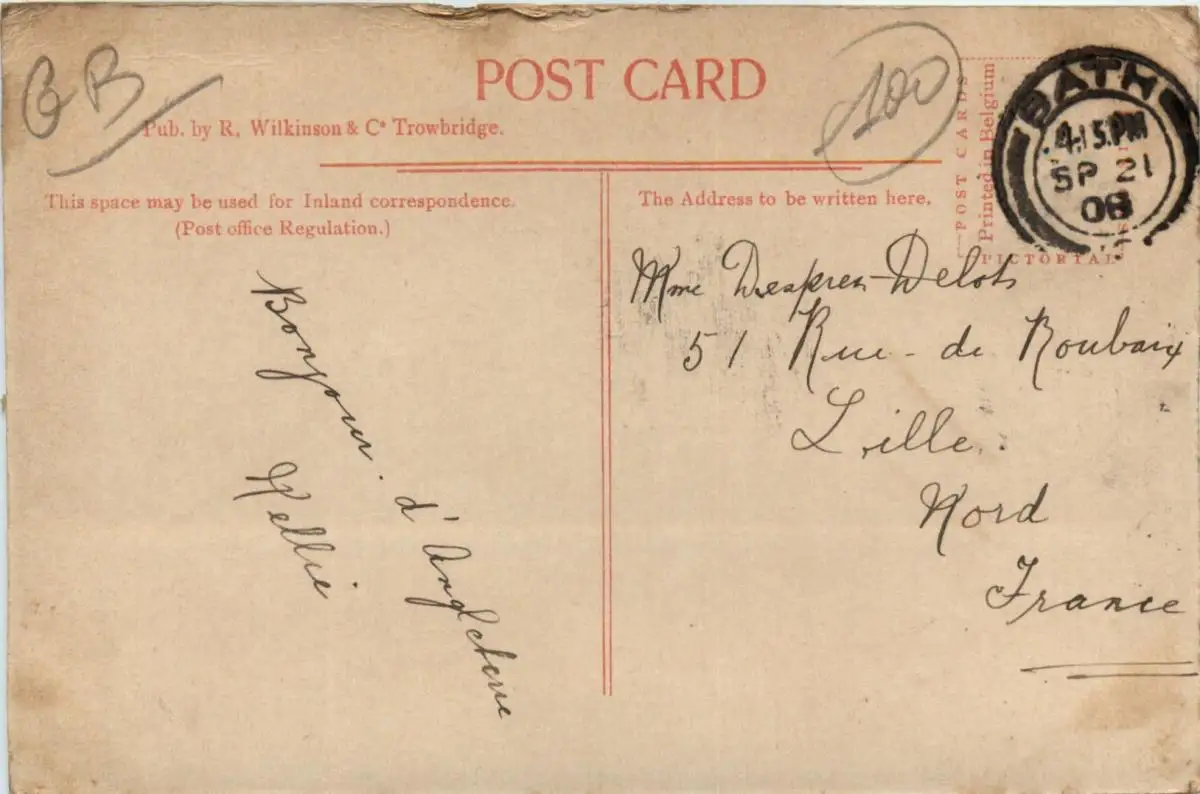 GB
POST CARD
100
Pub. by R. Wilkinson & Co Trowbridge.
This space may be used for Inland correspondence.
(Post office Regulation.)
The Address to be written here.
POST CARDS
Printed in Belgium
PICTORIAL
BATH
4.15.PM
SP 21
08
Bonjour d'Angleterre
Nellie
Mme Desprez-Delots
51 Rue - de Roubaix
Lille.
Nord
France